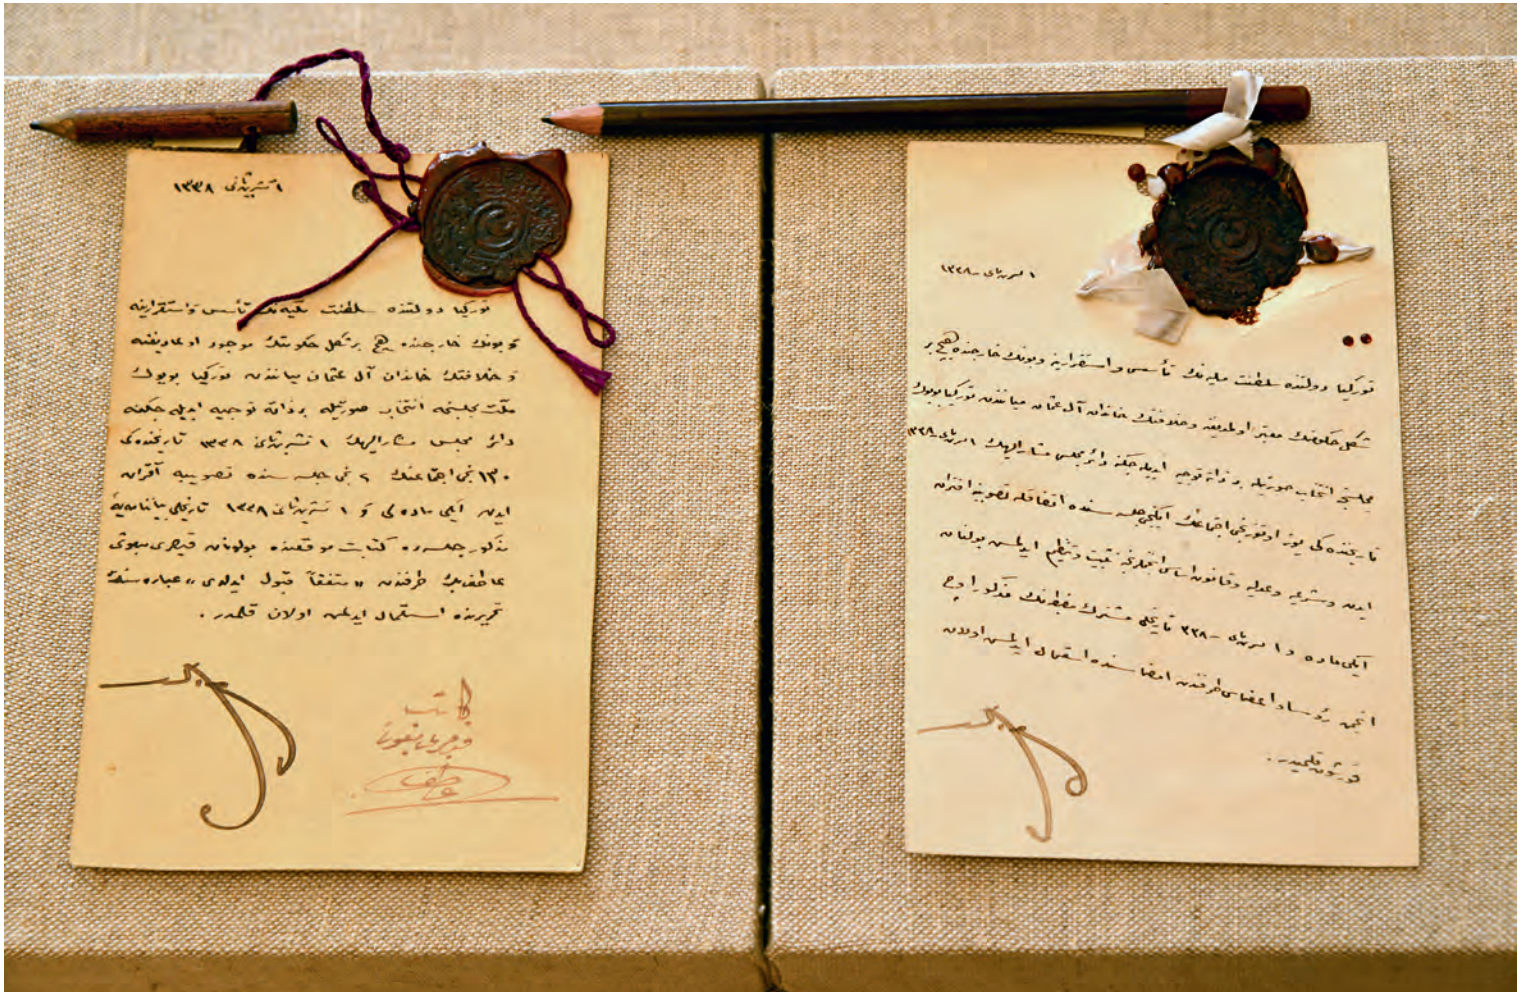 ١ تشرین ثانی ١٣٣٨
تورکیا دولتنده سلطنت ملیه‌نك تأسس و استقرارینه
و بونك خارجنده هیچ بر شکل حکومتك موجود اولمادیغنه
و خلافتك خاندان آل عثمان میاننده تورکیا بویوك
ملت مجلسنجه انتخاب صورتیله بر ذاته توجیه ایدیله جکنه
دائر مجلس مشارالیهك ١ تشرین ثانی ١٣٣٨ تاریخنده کی
١٣٠ نجی اجتماعنك ٢ نجی جلسه سنده تصویبه اقتران
ایدن ایکی ماده لی و ١ تشرین ثانی ١٣٣٨ تاریخلی بیاننامه‌یه
مذکور جلسه ده کتابت موقعنده بولونان قیصری مبعوثی
عاطف بك طرفندن «متفقاً قبول ایدلدی» عباره سنك
تحریرنده استعمال ایدلمش اولان قلمدر .
کاتب
قیصری مبعوثی
عاطف
١ تشرین ثانی ١٣٣٨
تورکیا دولتنده سلطنت ملیه نك تأسس و استقرارینه و بونك خارجنده هیچ بر
شکل حکومتك معتبر اولمدیغنه و خلافتك خاندان آل عثمان میاننده تورکیا بویوك
مجلسنجه انتخاب صورتیله بر ذاته توجیه ایدیله جکنه دائر مجلس مشارالیهك ١ تشرین ثانی ١٣٣٨
تاریخنده کی یوز اوتوزنجی اجتماعنك ایکنجی جلسه سنده اتفاقله تصویبه اقتران
ایدن و شرعیه و عدلیه و قانون اساسی انجمنلرنجه تثبیت و تنظیم ایدلمش بولنان
ایکی ماده و ١ تشرین ثانی ٣٣٨ تاریخلی مشترك مضبطه نك مذکور اوچ
انجمن رؤسا و اعضاسی طرفندن امضاسنده استعمال ایدلمش اولان
قورشون قلمیدر .